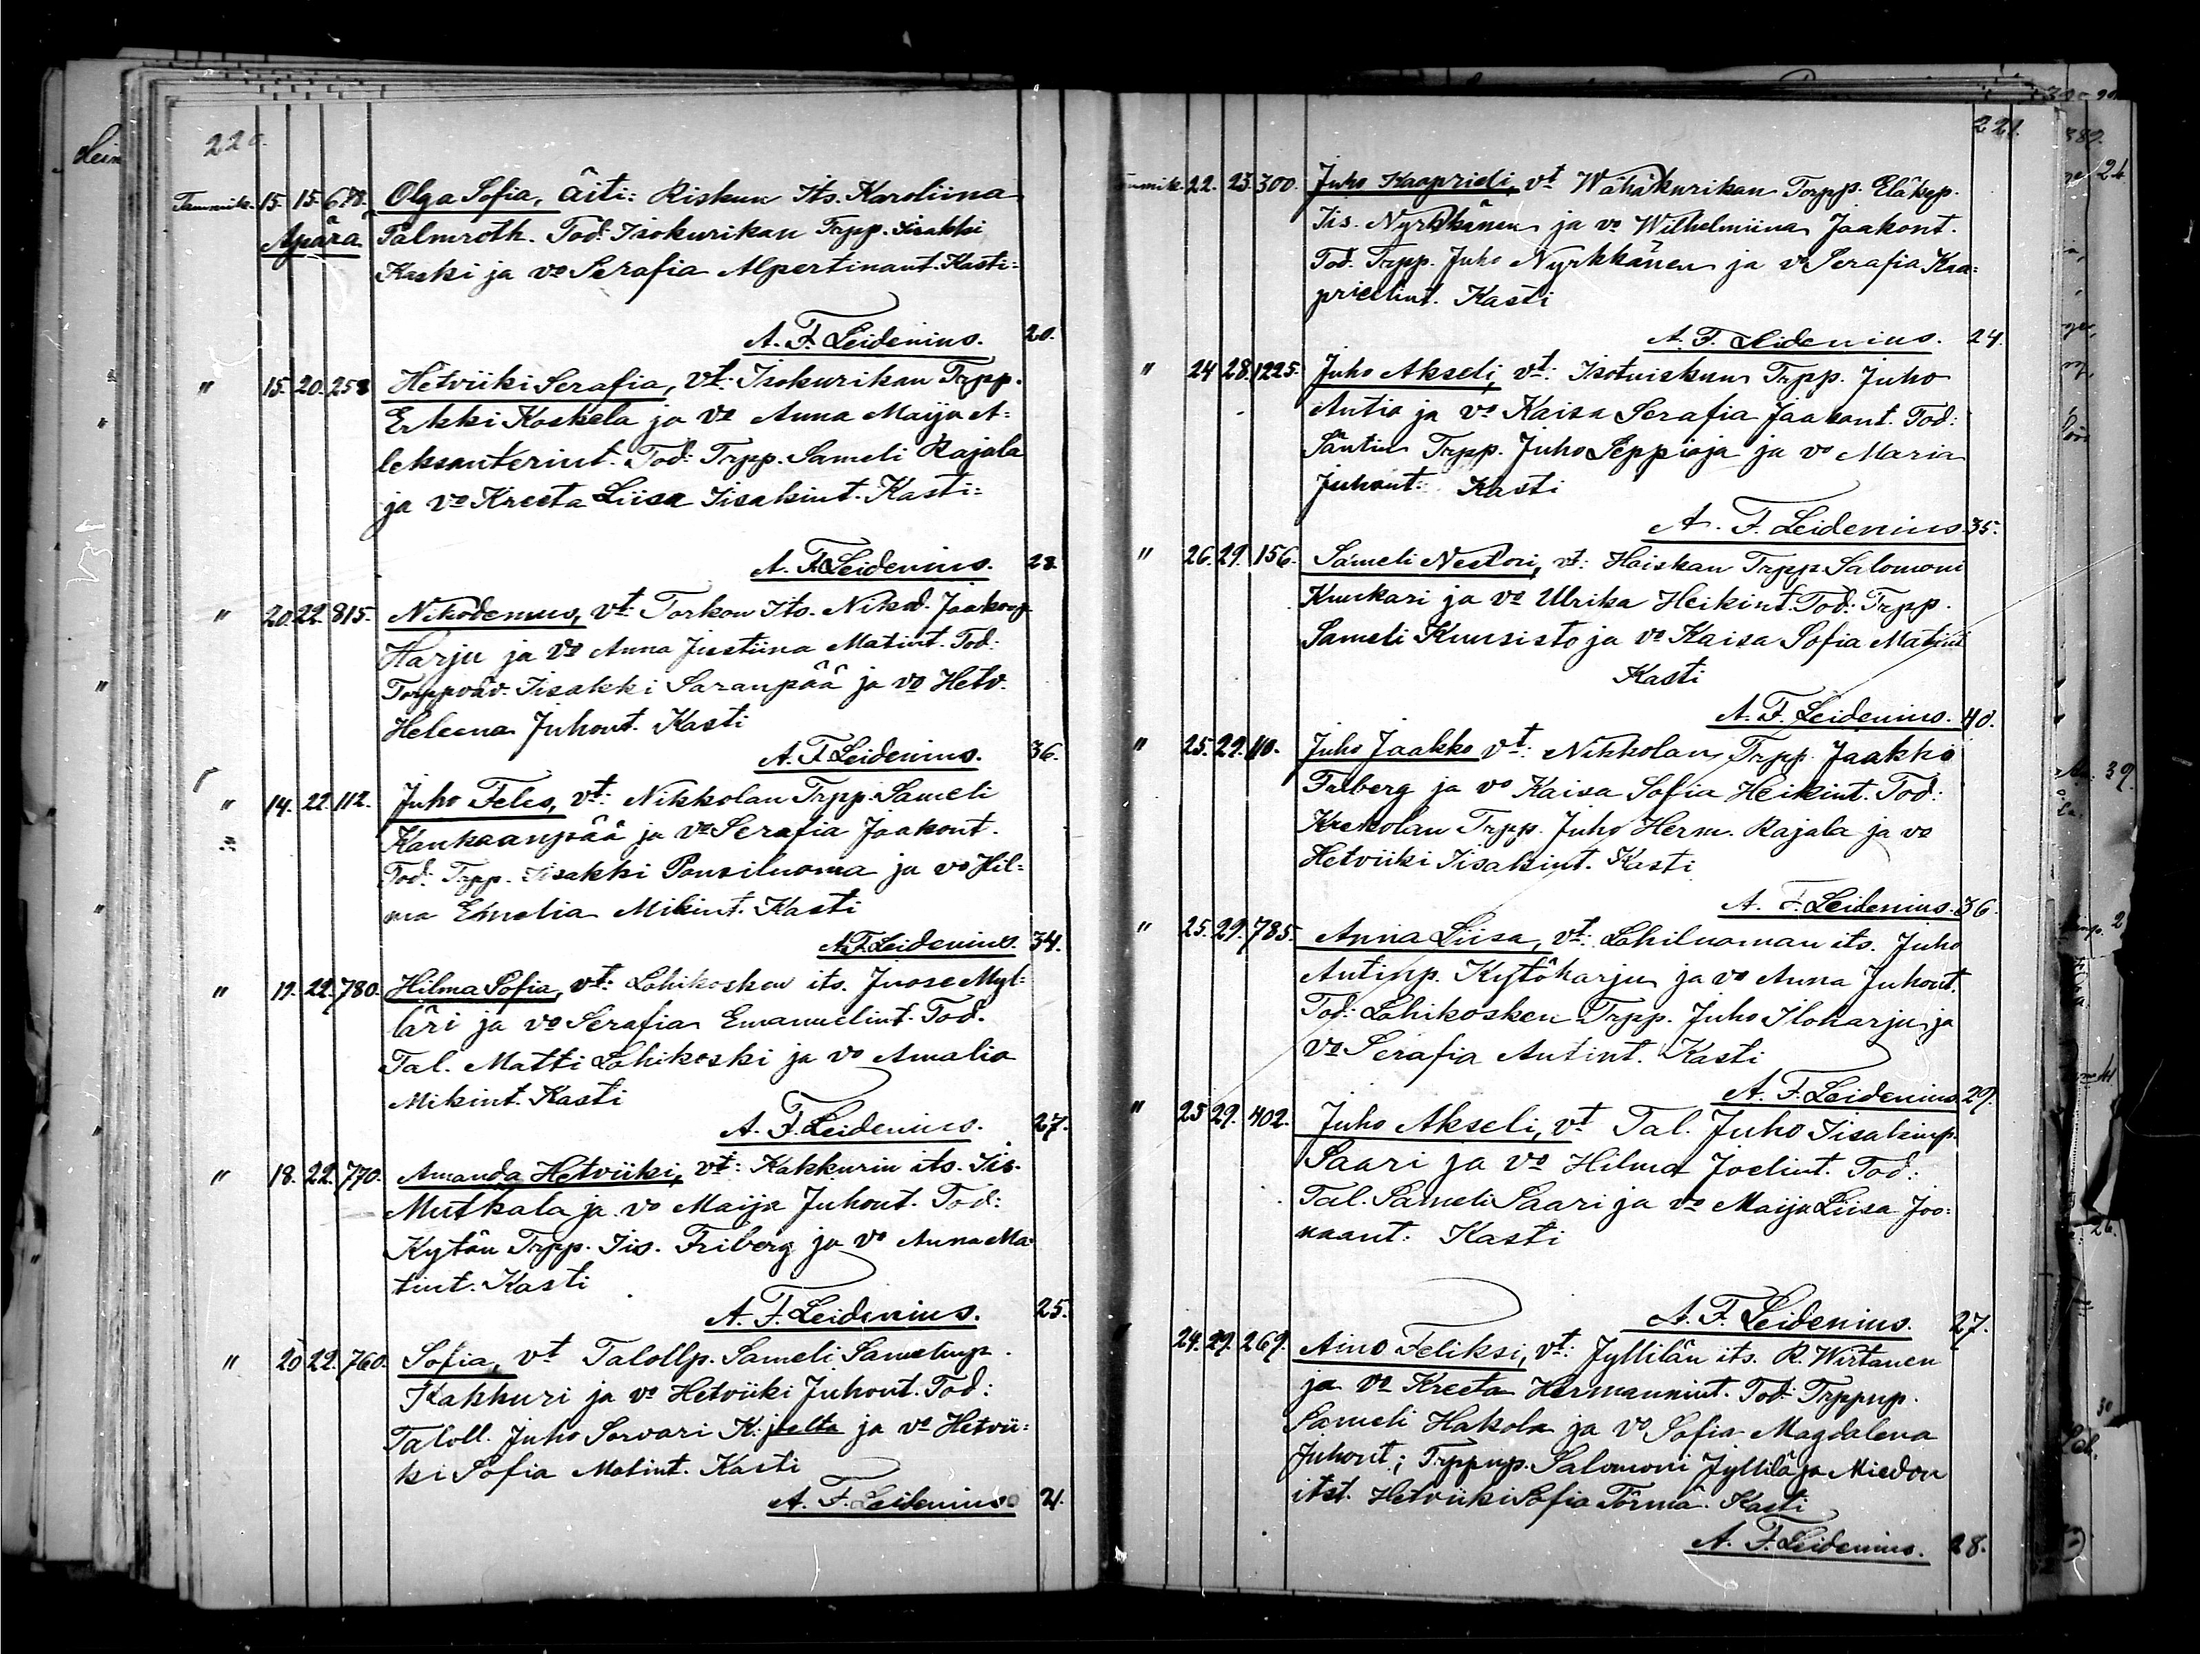 220.
Tammik. 15. 15. 678. Olga Sofia, äiti: Riskun Its. Karoliina
Apärä Palmroth. Tod: Isokurikan Trpp. Iisakki
Kaski ja vo Serafia Alpertinant. Kasti=
A. F. Leidenius. 20.
" 15. 20. 258 Hetviiki Serafia, vt: Isokurikan Trpp.
Erkki Koskela ja vo Anna Maija A=
leksanterint. Tod: Trpp. Sameli Rajala
ja vo Kreeta Liisa Iisakint. Kasti=
A. F. Leidenius. 28.
" 20. 22. 815. Nikodemus, vt: Torkon Its. Nikod. Jaakonp
Harju ja vo Anna Justiina Matint. Tod.
Torppväv. Iisakki Saranpää ja vo Hetv.
Heleena Juhont. Kasti
A. F. Leidenius. 36.
" 14. 22. 112. Juho Feles, vt: Nikkolan Trpp. Sameli
Kankaanpää ja vo Serafia Jaakont.
Tod: Trpp. Iisakki Ponsiluoma ja vo Hil=
ma Emelia Mikint. Kasti
A. F. Leidenius. 34.
" 19. 22. 780. Hilma Sofia, vt: Lohikosken its. Juose Myl=
läri ja vo Serafia Emanuelint. Tod.
Tal. Matti Lohikoski ja vo Amalia
Mikint. Kasti
A. F. Leidenius. 27.
" 18. 22. 770. Amanda Hetviiki, vt: Kakkurin its. Iis.
Mutkala ja vo Maija Juhont. Tod:
Kytän Trpp. Iis. Friberg ja vo Anna Ma=
tint. Kasti
A. F. Leidenius. 25.
" 20 22. 760. Sofia, vt Talollp. Sameli Samelinp.
Kakkuri ja vo Hetviiki Juhont. Tod:
Taloll. Juho Sorvari K: ja vo Hetvii=
ki Sofia Matint. Kasti
A. F. Leidenius 21.
221.
22. 23. 300. Juho Kaaprieli, vt Wähäkurikan Torpp. Eläkep.
Iis. Nyrkkänen ja vo Wilhelmiina Jaakont.
Tod. Trpp. Juho Nyrkkänen ja vo Serafia Kaa=
prielint. Kasti
A. F. Leidenius. 24.
" 24 28. 1225. Juho Akseli, vt: Isotuiskun Trpp. Juho
Antia ja vo Kaisa Serafia Jaakont. Tod:
Säntin Trpp. Juho Seppioja ja vo Maria
Juhont: Kasti
A. F. Leidenius 35.
" 26. 29. 156. Sameli Nestori, vt: Haiskan Trpp. Salomoni
Kuukari ja vo Ulrika Heikint. Tod: Trpp.
Sameli Kuusisto ja vo Kaisa Sofia Matint
Kasti
A. F. Leidenius. 40.
" 25. 29. 110. Juho Jaakko vt: Nikkolan Trpp. Jaakko
Friberg ja vo Kaisa Sofia Heikint. Tod:
Krekolan Trpp. Juho Herm. Rajala ja vo
Hetviiki Iisakint. Kasti
A. F. Leidenius. 36.
" 25. 29. 785. Anna Liisa, vt: Lohiluoman its. Juho
Antinp. Kytöharju ja vo Anna Juhont.
Tod: Lohikosken Trpp. Juho Iloharju ja
vo Serafia Antint. Kasti
A. F. Leidenius 29.
" 25 29. 402. Juho Akseli, vt Tal. Juho Iisakinp.
Saari ja vo Hilma Joelint. Tod:
Tal. Sameli Saari ja vo Maija Liisa Joo=
naant. Kasti
A. F. Leidenius. 27.
24. 29. 269. Aino Feliksi, vt: Jyllilän its. R. Wirtanen
ja vo Kreeta Hermannint. Tod: Trppnp.
Sameli Hakola ja vo Sofia Magdalena
Juhont; Trppnp. Salomoni Jyllilä ja Miedon
itst. Hetviiki Sofia Törmä. Kasti
A. F. Leidenius. 28.